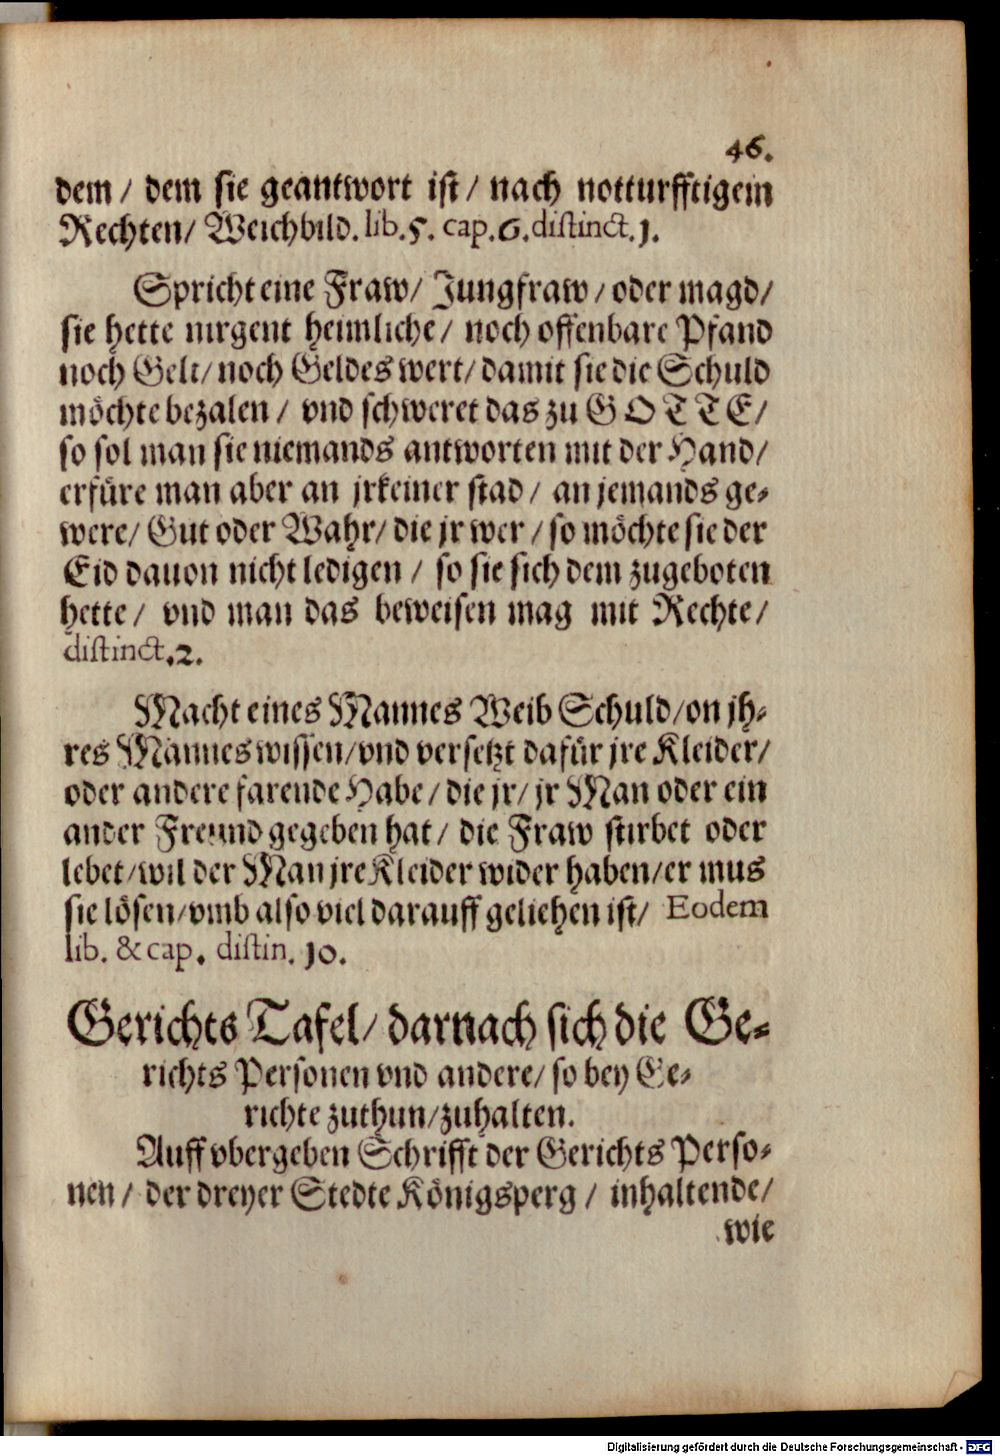 46.
dem / dem sie geantwort ist / nach notturfftigem
Rechten / Weichbild. lib. 5. cap. 6. distinct. 1.
Spricht eine Fraw / Jungfraw / oder magd /
sie hette nirgent heimliche / noch offenbare Pfand
noch Gelt / noch Geldes wert / damit sie die Schuld
möchte bezalen / vnd schweret das zu GOTTE /
so sol man sie niemands antworten mit der Hand /
erfüre man aber an jrkeiner stad / an jemands ge-
were / Gut oder Wahr / die jr wer / so möchte sie der
Eid dauon nicht ledigen / so sie sich dem zugeboten
hette / vnd man das beweisen mag mit Rechte /
distinct. 2.
Macht eines Mannes Weib Schuld / on jh-
res Mannes wissen / vnd versetzt dafür jre Kleider /
oder andere farende Habe / die jr / jr Man oder ein
ander Freund gegeben hat / die Fraw stirbet oder
lebet / wil der Man jre Kleider wider haben / er mus
sie lösen / vmb also viel darauff geliehen ist / Eodem
lib. & cap. distin. 10.
Gerichts Tafel / darnach sich die Ge-
richts Personen vnd andere / so bey Ge-
richte zuthun / zuhalten.
Auff vbergeben Schrifft der Gerichts Perso-
nen / der dreyer Stedte Königsperg / inhaltende /
wie
Digitalisierung gefördert durch die Deutsche Forschungsgemeinschaft - DFG